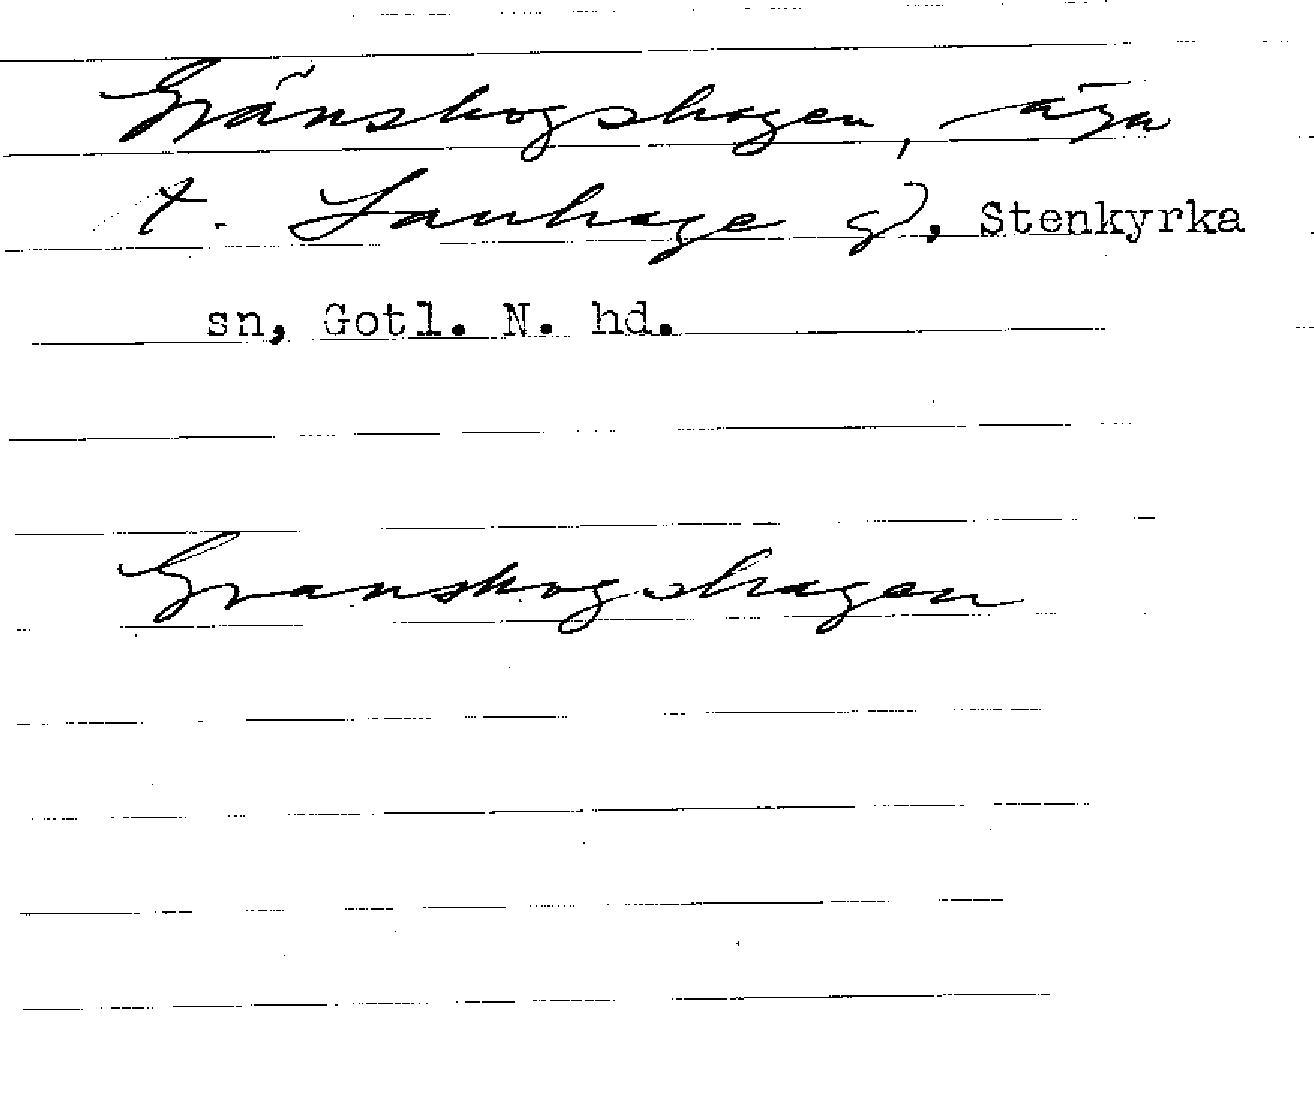 Gränskogshagen, äga
t. Lauhage g), Stenkyrka
sn, Gotl. N. hd.
Granskogshagen